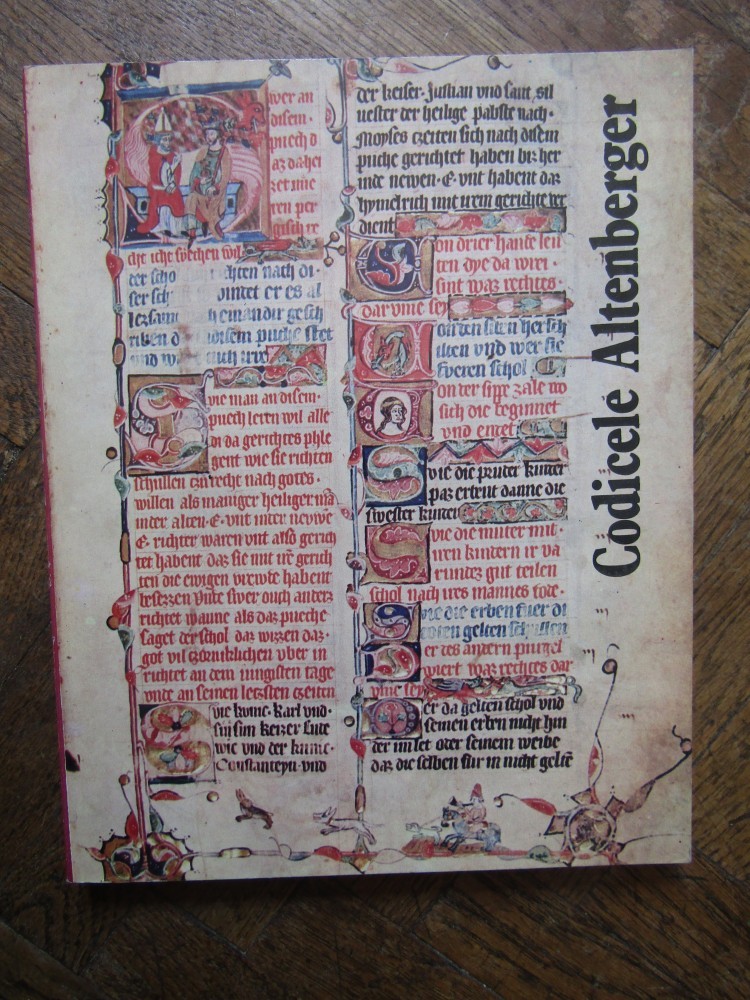 wer an
disem
puech d
az da hei
zet nie
ren per
che iche svechen wil
der scho hten nach di
ser sch ointet er es al
lezsam hein an dir gesch
riben d disem puche stet
vnd w auch
vie man an disem
puech leren wil alle
di da gerichtes phle
gent wie sie richten
schullen czu recht nach gotes
willen als maniger heiliger
inter alten E vnt inter
E richter waren vnt also gerich
tet habent daz sie mit gerich
ten die ewigen vrewte habent
besezzen swer ouch anders
richtet wanne als daz pueche
saget der schol daz wizzen daz
got vil czorniklichen vber in
richtet an dem iungisten tage
vnde an seinen letzsten czeiten
vie kunic Karl vnd
keizer
wie vnd der kunic
Constanteyn vnd
der keiser Justian vnd sant sil
uester der heilige pabste nach
Moyses czeiten sich nach disem
puche gerichtet haben biz her
inde newen E vnt habent daz
hymelrich mit irem gerichte ver
dient
on drier hante leu
ten dye da wrei
sint waz rechtes
dar vme sey
schilten vnd wer sie
fveren schol
on der sippe zale wo
sich die beginnet
vnd entet
vie die pruter kinter
paz erbent danne die
swester kinter
vie die muter mit
iren kindern ir va
rundez gut teilen
schol nach ires mannes tode
vie die erben fuer di
toten gelten schullen
er des antern purgel
wiert waz rechtes dar
vme sey
er da gelten schol vnd
seinen erben nicht hin
der im let oter seinem weibe
daz die selben fur in nicht
Codicele Altenberger